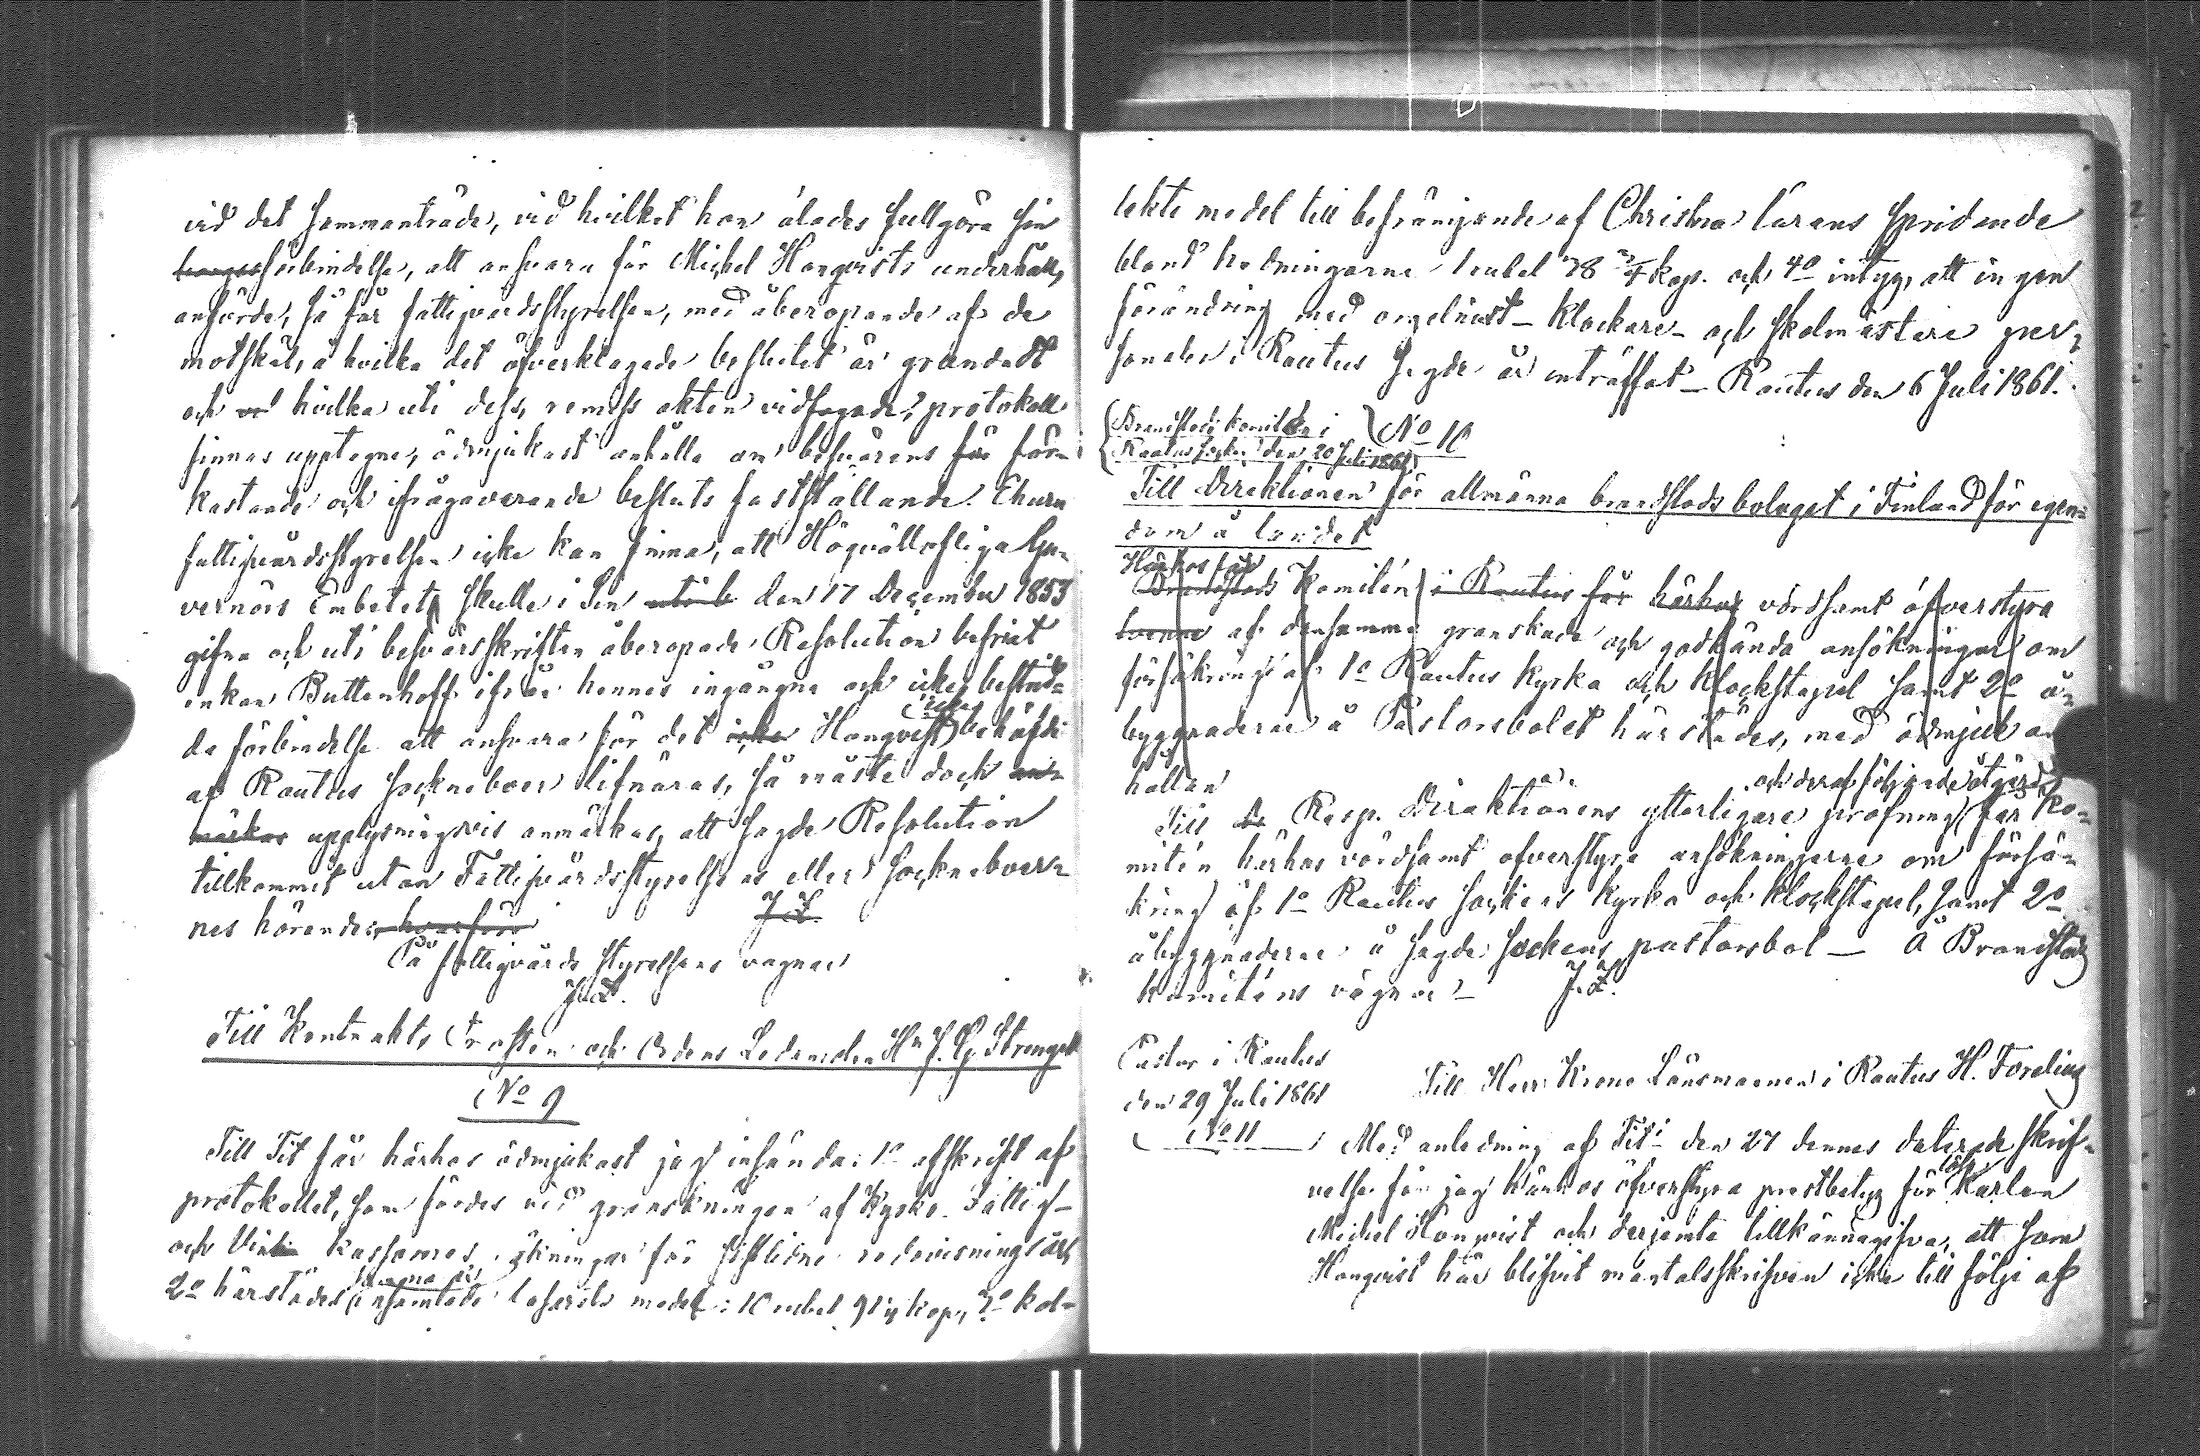 vid det sammanträde, vid hvilket han ålades fullgöra sin
förbindelse, att ansvara för Michel Hongvists underhåll,
anförde, så får fattigvårdsstyrelsen, med åberopande af de
motskäl, å hvilka det öfverklagade beslutet är grundadt
och hvilka uti dess, remiss akten vidfogade, protokoll
finnas upptagne, ödmjukast anhålla om besvärens för för-
kastande och ifrågavarande besluts fastställande. Ehuru
fattigvårdsstyrelsen icke kan finna, att Högvällofliga Gu-
vernörs Embetet skulle i sin den 17 December 1853
gifna och uti besvärsskriften åberopade Resolution befriat
enkan Buttenhoff ifrån hennes ingångna och icke bestrid-
da förbindelse att ansvara för det icke Hongvist (icke) behöfde
af Rautus Sockneboer lifnäras, så måste dock an-
märkas upplysningsvis anmärkas, att sagde Resolution
tillkommit utan Fattigvårdsstyrelsens eller Sockneboer-
nes hörande, hvarföre J. Z.
På fattigvårds styrelsens vägnar
J. Z.
Till Kontrakts Prosten och Ordens Ledamoten Hr J. G. Strengell
No 9
Till Tit får härhos ödmjukast jag insända: 1o afskrift af
protokollet, som fördes vid granskningen af Kyrko- Fattig-
och Vin kassornas räkningar för sistlidne redovisningsår,
2o härstädes insamlade lasaretts medel: 10 rubel 91 1/2 kop., 3o kol-
lekte medel till befrämjande af Christna lärans spridande
bland hedningarne 1 rubel 38 3/4 kop. och 4o intyg, att ingen
förändring med orgelnist- klockare- och skolmästare per-
sonalen i Rautus Sagde år inträffat - Rautus den 6 Juli 1861.
Brandstods komitén i No 10
Rautus socken den 20 Juli 1861
Till Direktionen för allmänna brandstods bolaget i Finland för egen-
dom å landet
Härhos får
Brandstods Komitén i Rautus får härhos vördsamt öfverstyra
tvenne af densamma granskade och godkända ansökningar om
försäkring af 1o Rautus kyrka och klockstapel samt 2o å-
byggnaderne å Pastorsbolet härstädes, med ödmjuk an
hållan
och deraf följande åtgärd
Till De Resp. Direktionens ytterligare pröfning får Ko-
mitén härhos vördsamt öfverstyra ansökningarne om försä-
kring af 1o Rautus Sockens kyrka och klockstapel, samt 2o
åbyggnaderne å sagde sockens pastorsbol - Å Brandstods
komiténs vägnar - J. Z.
Pastor i Rautus
den 29 Juli 1861
No 11
Till Herr Krono Länsmannen i Rautus H. Foreling
Med anledning af Tit: den 27 dennes daterade skrif-
velse får jag härhos öfverstyra prestbetyg för Karlen
Michel Hongvist och derjemte tillkännagifva, att som
Hongvist här blifvit mantalsskrifven icke till följe af